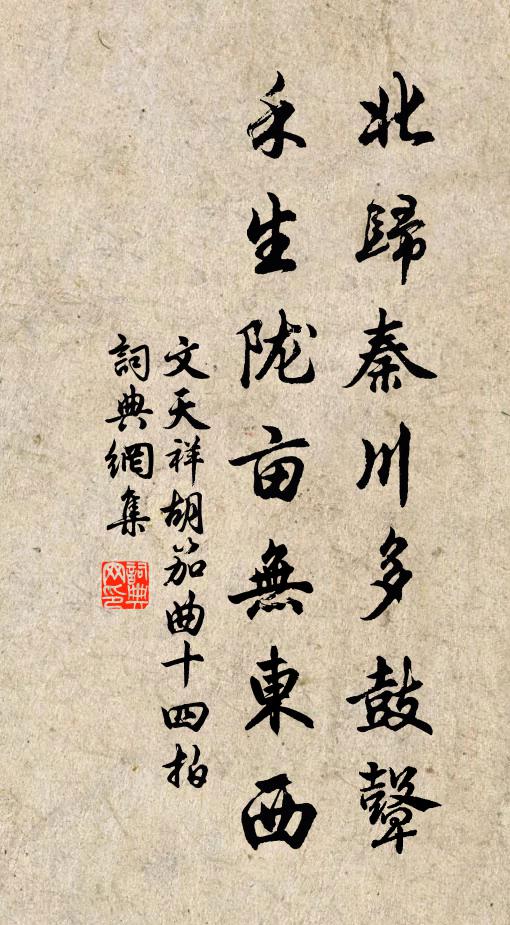 北歸秦川多鼓鼙
禾生陇亩無東西
文天祥胡笳曲十四拍
詞典網集
詞典网印